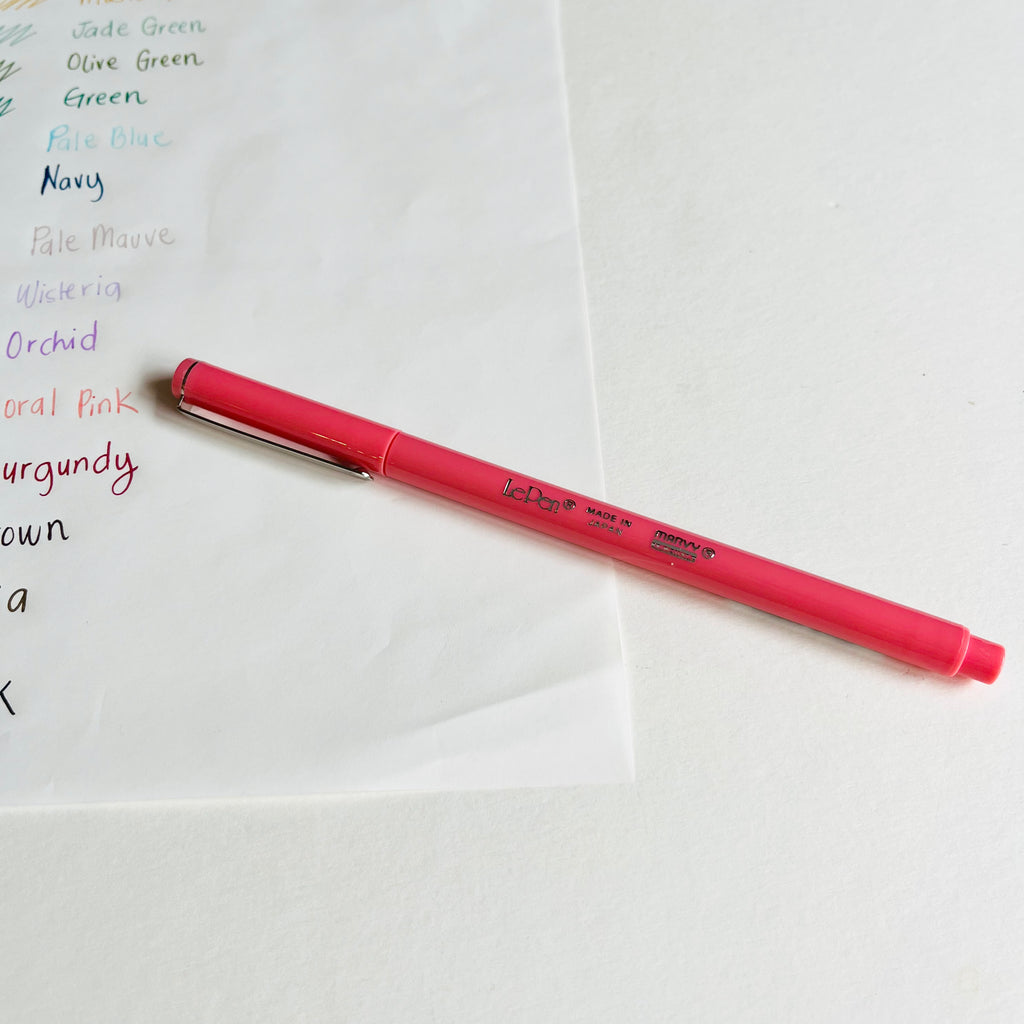 Jade Green
Olive Green
Green
Pale Blue
Navy
Pale Mauve
Wisteria
Orchid
oral Pink
urgundy
own
ia
K
LePen®
MADE IN
JAPAN
marvy®